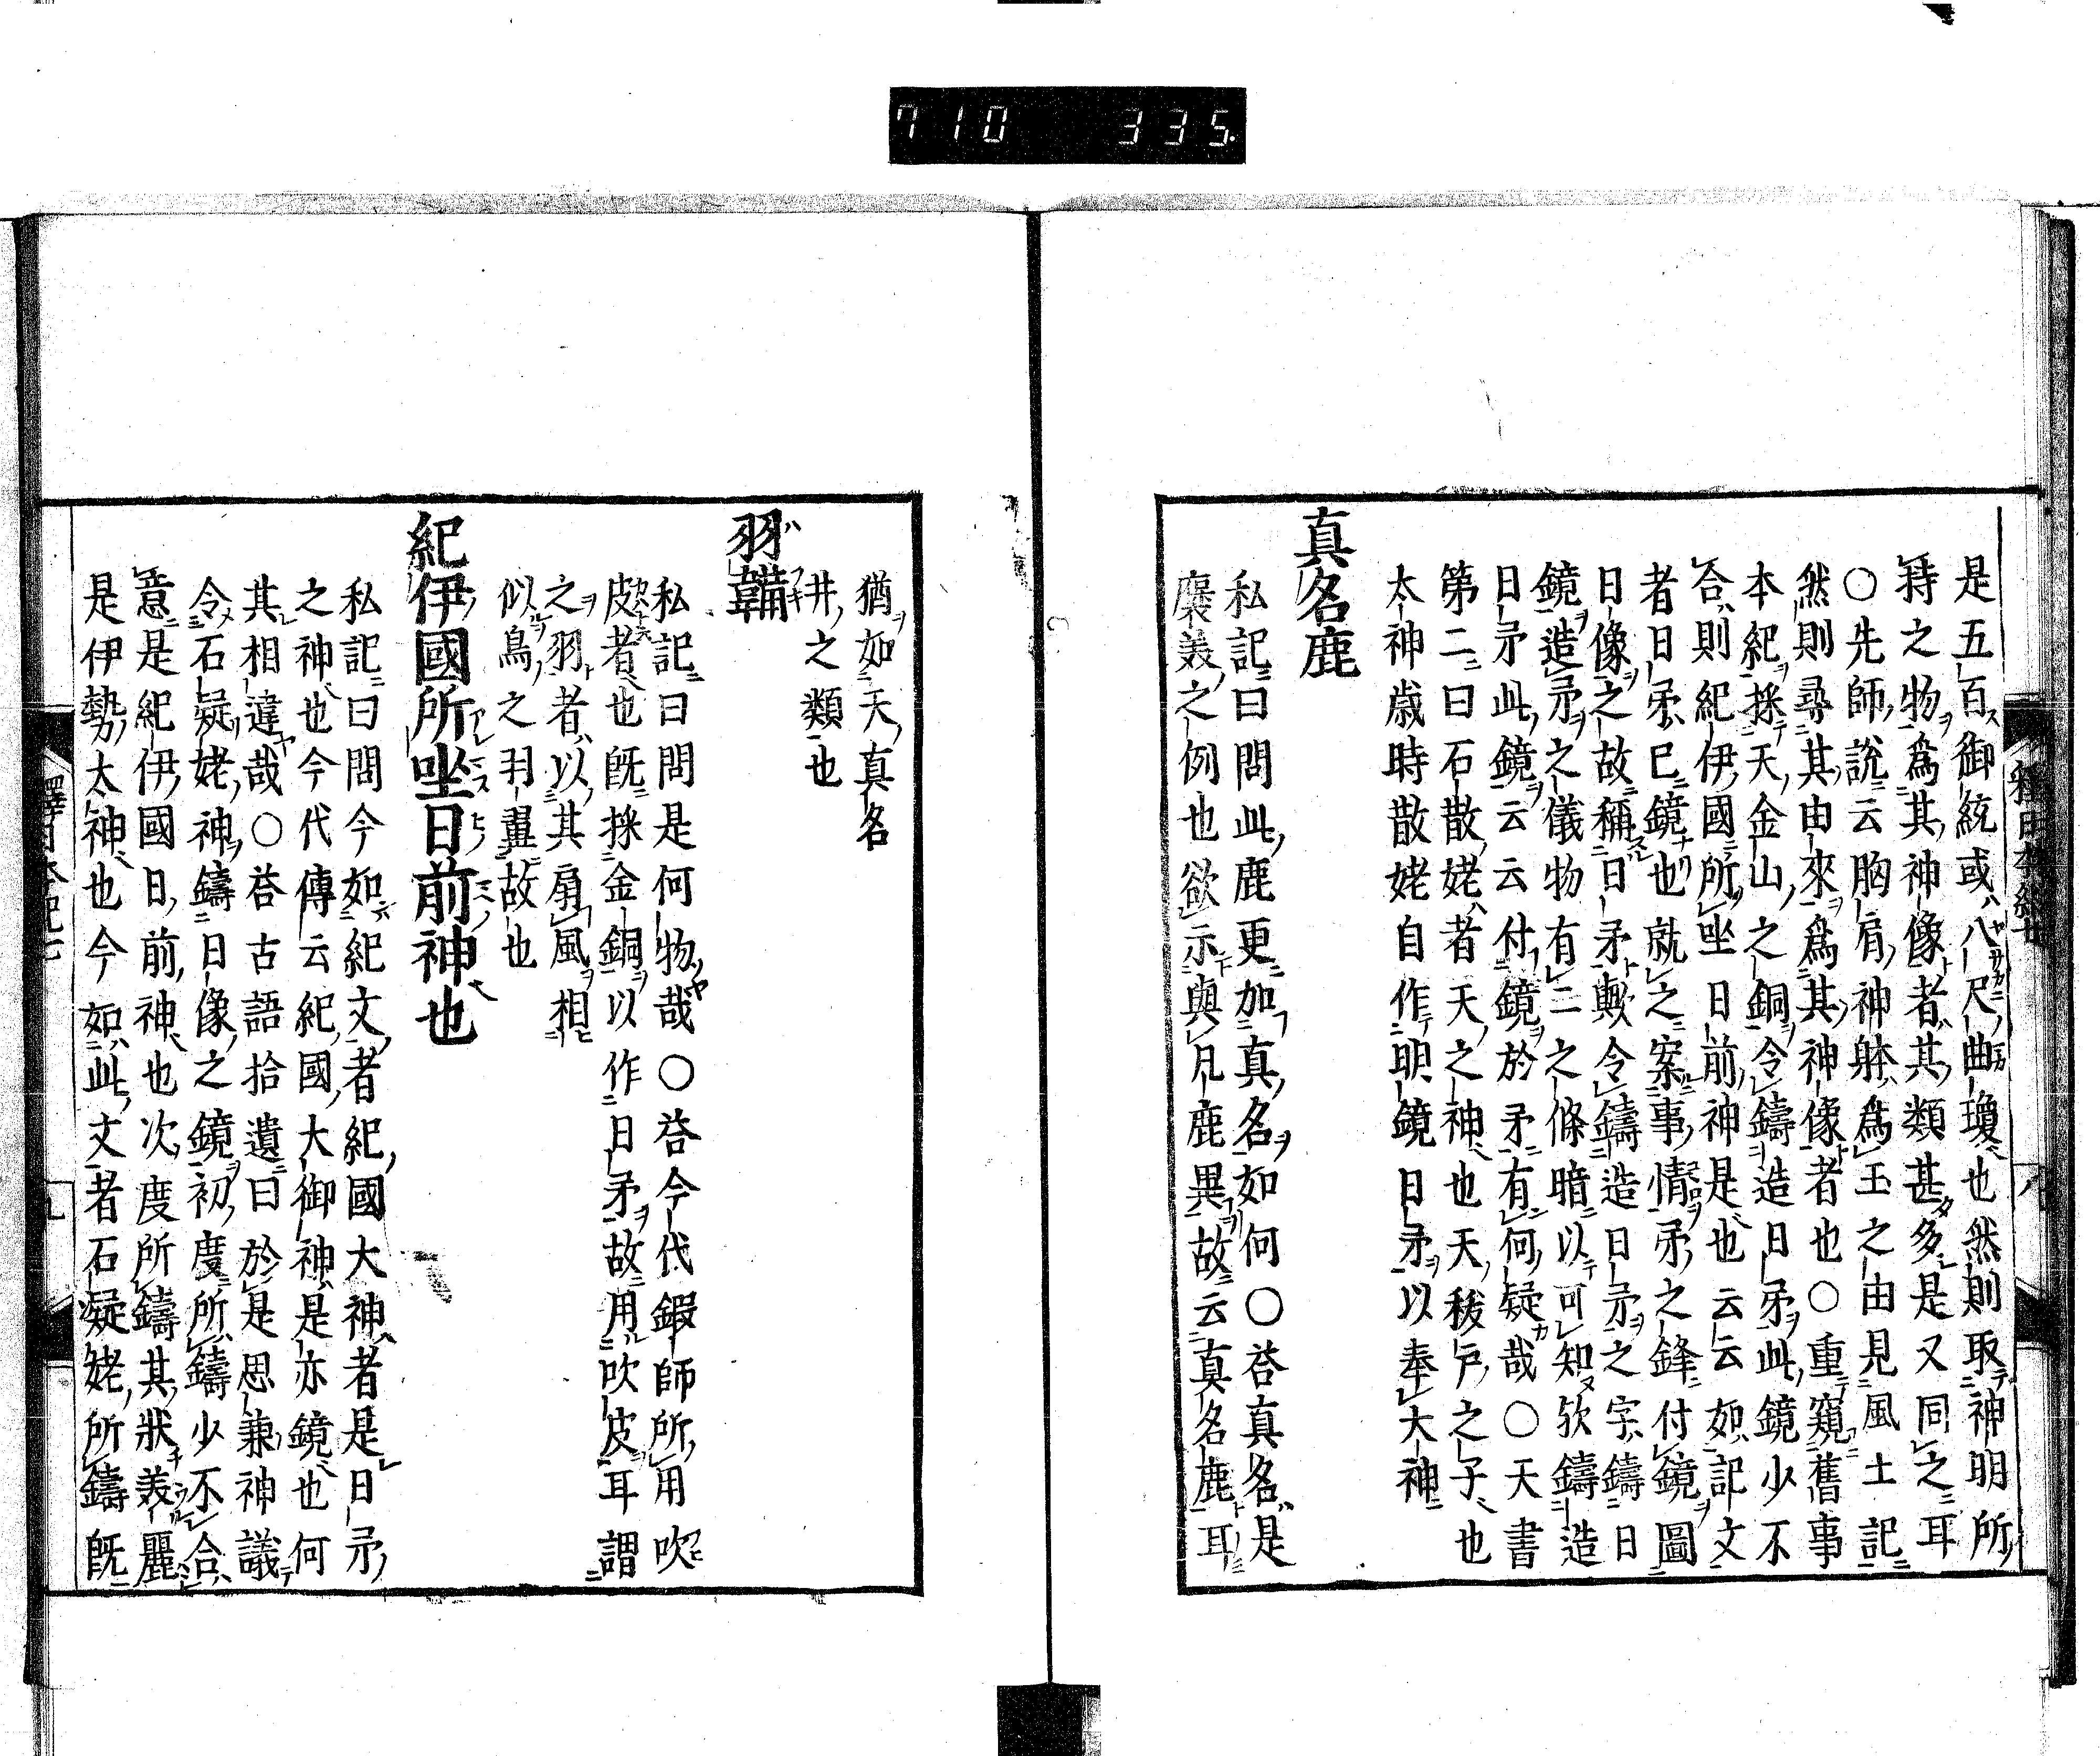 710 335.
是五百御統或八尺曲瓊也然則取神明所
持之物爲其神像者其類甚多是又同之耳
○先師說云胸肩神躰爲玉之由見風土記
然則尋其由來爲其神像者也○重窺舊事
本紀採天金山之銅令鑄造日矛此鏡少不
合則紀伊國所坐日前神是也云云如記文
者日矛已鏡也就之案事情矛之鋒付鏡圖
日像之故稱日矛歟令鑄造日矛之字鑄日
鏡造矛之儀物有二之條暗以可知歟鑄造
日矛此鏡云云付鏡於矛有何疑哉○天書
第二曰石散姥者天之神也天秡戸之子也
太神歳時散姥自作明鏡日矛以奉大神
真名鹿
私記曰問此鹿更加真名如何○荅真名是
褒美之例也欲示與凡鹿異故云真名鹿耳
猶如天真名
井之類也
羽鞴
私記曰問是何物哉○荅今代鍜師所用吹
皮者也旣採金銅以作日矛故用吹皮耳謂
之羽者以其扇風相
似鳥之羽翼故也
紀伊國所坐日前神也
私記曰問今如紀文者紀國大神者是日矛
之神也今代傳云紀國大御神是亦鏡也何
其相違哉○荅古語拾遺曰於是思兼神議
令石疑姥神鑄日像之鏡初度所鑄少不合
意是紀伊國日前神也次度所鑄其狀美麗
是伊勢太神也今如此文者石凝姥所鑄旣